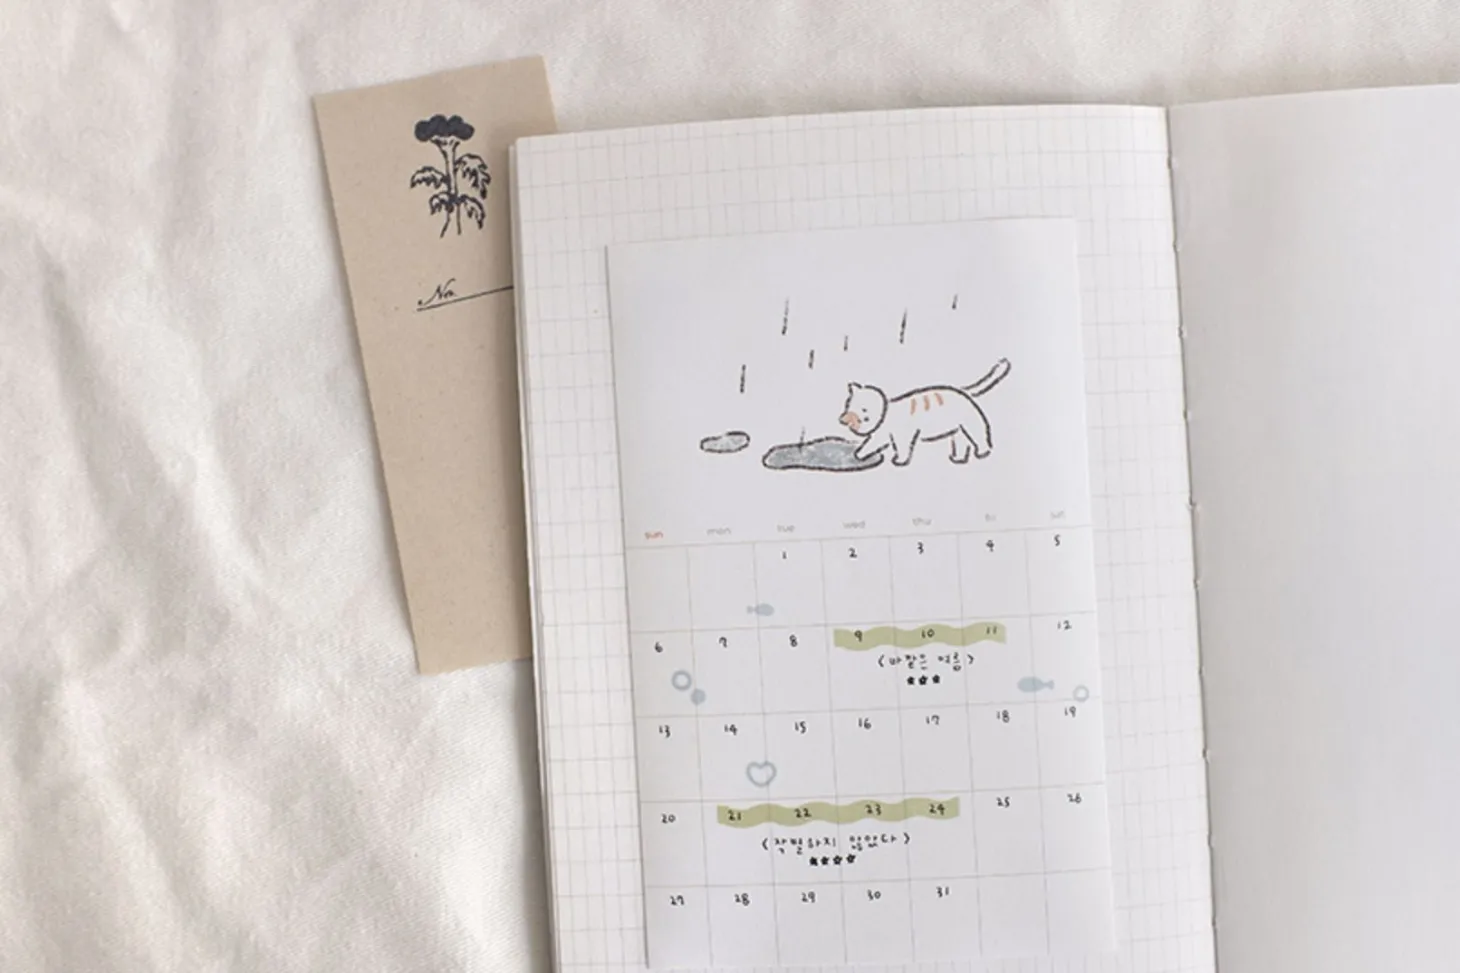 No.
sun mon tue wed thu fri sat
1 2 3 4 5
6 7 8 9 10 11 12
<바깥은 여름>
13 14 15 16 17 18 19
20 21 22 23 24 25 26
<작별하지 않았다>
27 28 29 30 31